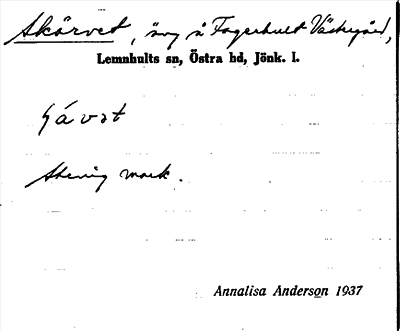 Skörvet, äng å Fagerhult Västergård,
Lemnhults sn, Östra hd, Jönk. l.
Stenig mark.
Annalisa Anderson 1937